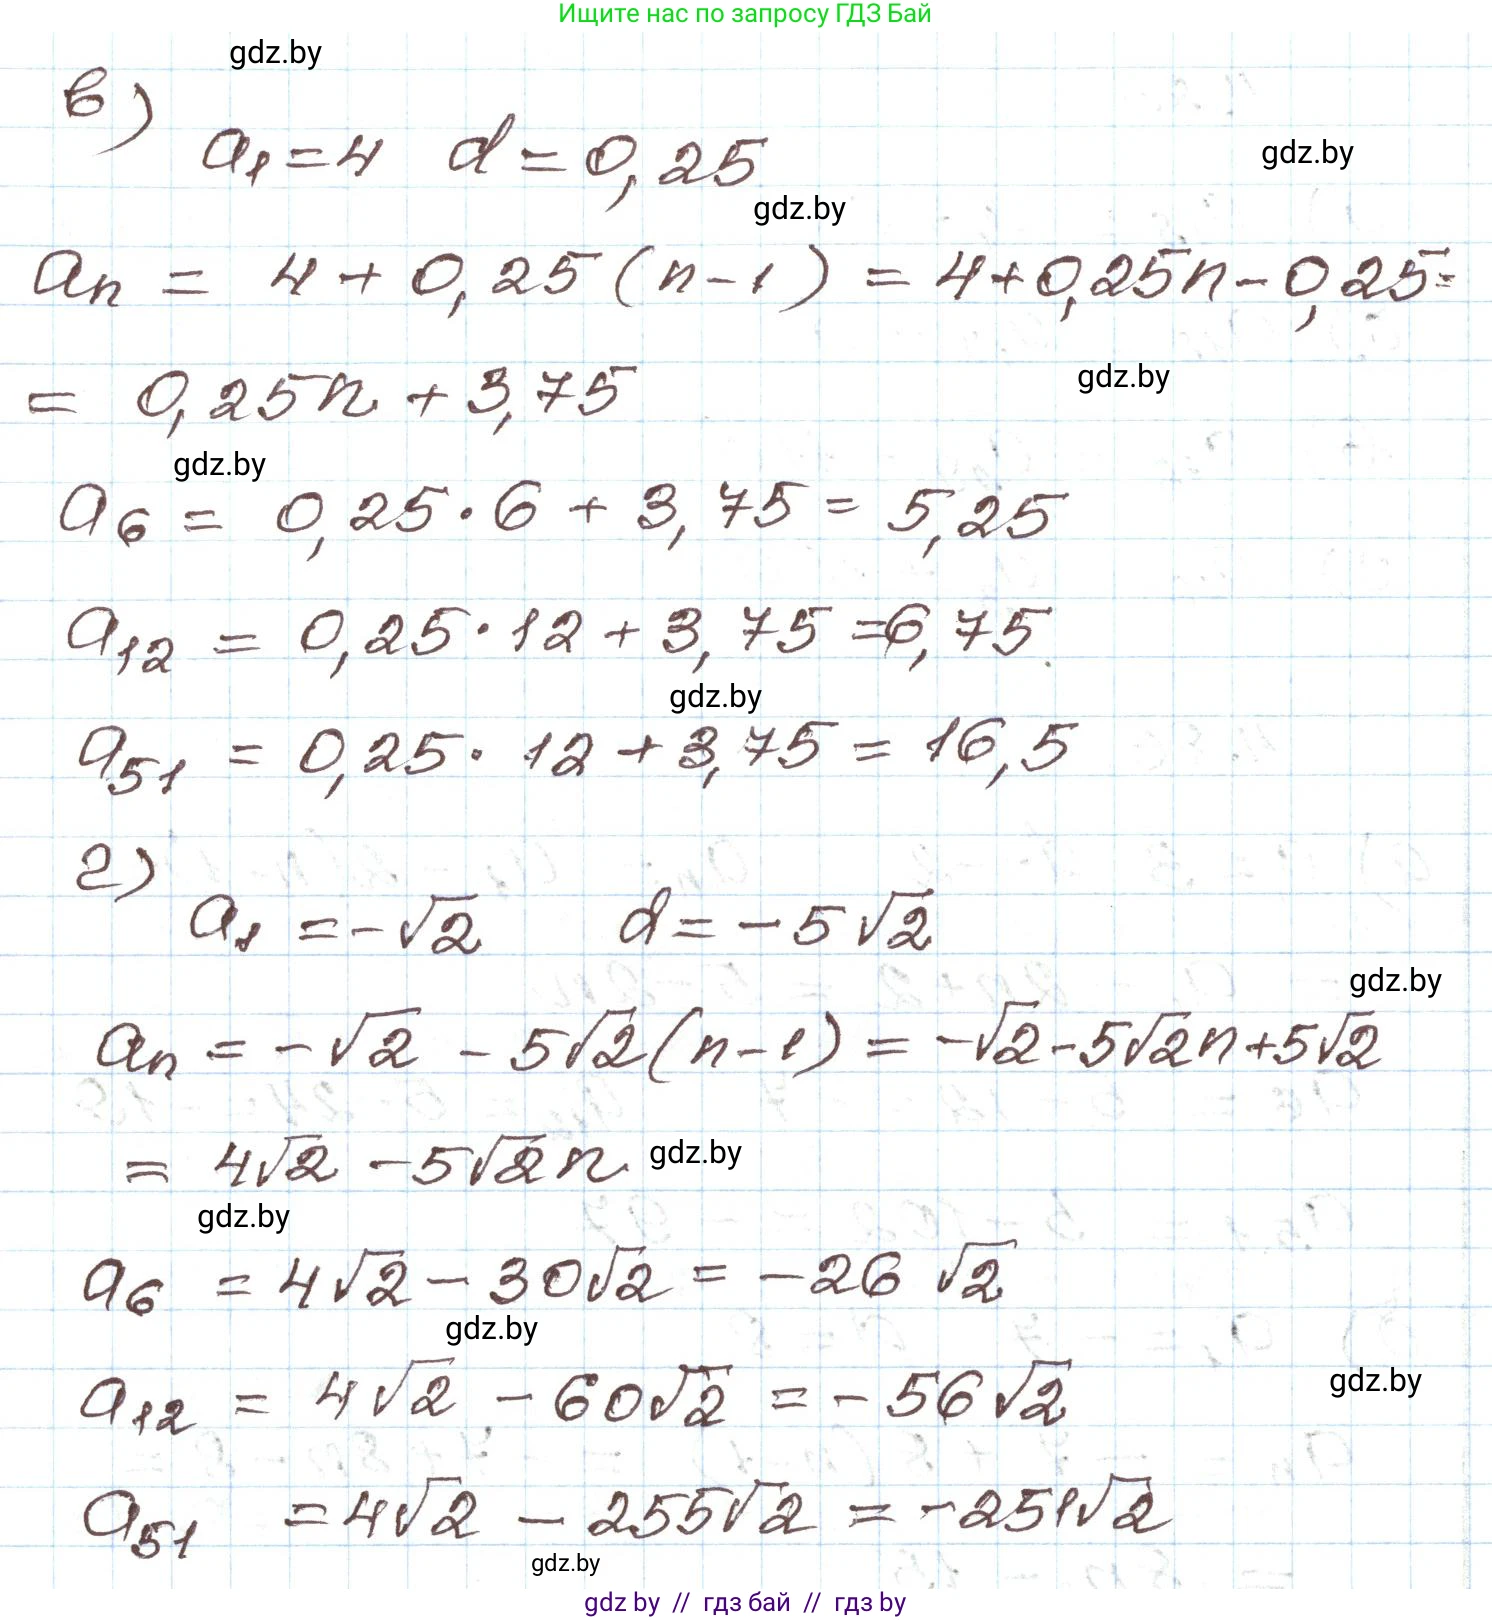 Ищите нас по запросу ГДЗ Бай
gdz.by
в)
a₁ = 4 d = 0,25
gdz.by
gdz.by
aₙ = 4 + 0,25 (n - 1) = 4 + 0,25n - 0,25 =
= 0,25n + 3,75
gdz.by
gdz.by
a₆ = 0,25 · 6 + 3,75 = 5,25
a₁₂ = 0,25 · 12 + 3,75 = 6,75
gdz.by
a₅₁ = 0,25 · 12 + 3,75 = 16,5
г)
a₁ = -√2 d = -5√2
gdz.by
aₙ = -√2 - 5√2 (n - 1) = -√2 - 5√2n + 5√2
= 4√2 - 5√2 n
gdz.by
gdz.by
a₆ = 4√2 - 30√2 = -26√2
gdz.by
a₁₂ = 4√2 - 60√2 = -56√2
gdz.by
a₅₁ = 4√2 - 255√2 = -251√2
gdz.by
gdz by // гдз бай // гдз by